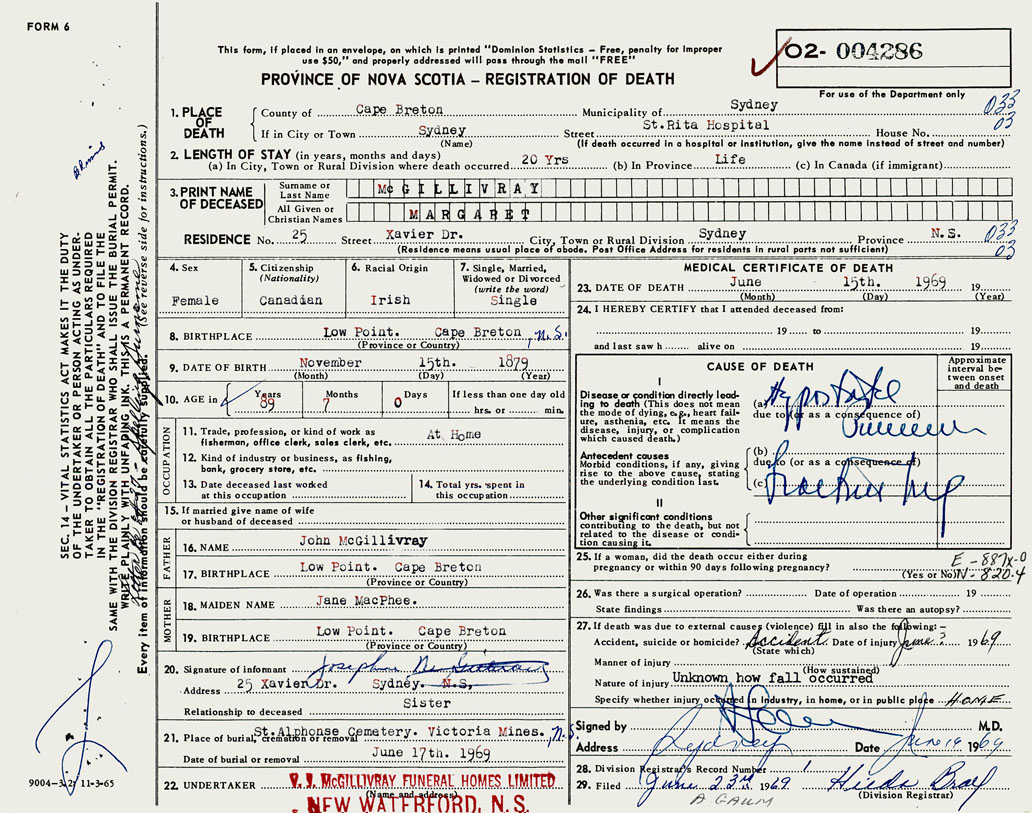 FORM 6
This form, if placed in an envelope, on which is printed "Dominion Statistics – Free, penalty for improper
use $50," and properly addressed will pass through the mail "FREE"
PROVINCE OF NOVA SCOTIA – REGISTRATION OF DEATH
02- 004286
For use of the Department only
1. PLACE OF DEATH
County of Cape Breton Municipality of Sydney 033
If in City or Town Sydney Street St.Rita Hospital House No. 03
(Name) (If death occurred in a hospital or institution, give the name instead of street and number)
2. LENGTH OF STAY (in years, months and days)
(a) In City, Town or Rural Division where death occurred 20 Yrs (b) In Province Life (c) In Canada (if immigrant)
3. PRINT NAME OF DECEASED
Surname or Last Name McGILLIVRAY
All Given or Christian Names MARGARET
RESIDENCE No. 25 Street Xavier Dr. City, Town or Rural Division Sydney Province N.S. 033
(Residence means usual place of abode. Post Office Address for residents in rural parts not sufficient) 03
4. Sex
Female
5. Citizenship
(Nationality)
Canadian
6. Racial Origin
Irish
7. Single, Married,
Widowed or Divorced
(write the word)
Single
8. BIRTHPLACE Low Point. Cape Breton, N.S.
(Province or Country)
9. DATE OF BIRTH November 15th. 1879
(Month) (Day) (Year)
10. AGE in Years 89 Months 7 Days 0 If less than one day old
hrs. or min.
OCCUPATION
11. Trade, profession, or kind of work as
fisherman, office clerk, sales clerk, etc. At Home
12. Kind of industry or business, as fishing,
bank, grocery store, etc.
13. Date deceased last worked
at this occupation
14. Total yrs. spent in
this occupation
15. If married give name of wife
or husband of deceased
FATHER
16. NAME John McGillivray
17. BIRTHPLACE Low Point. Cape Breton
(Province or Country)
MOTHER
18. MAIDEN NAME Jane MacPhee.
19. BIRTHPLACE Low Point. Cape Breton
(Province or Country)
20. Signature of informant Josephine
Address 25 Xavier Dr. Sydney. N.S,
Relationship to deceased Sister
21. Place of burial, cremation or removal St.Alphonse Cemetery. Victoria Mines. N.S.
Date of burial or removal June 17th. 1969
22. UNDERTAKER V. J. McGILLIVRAY FUNERAL HOMES LIMITED
(Name and address)
NEW WATERFORD, N.S.
MEDICAL CERTIFICATE OF DEATH
23. DATE OF DEATH June 15th. 1969 19
(Month) (Day) (Year)
24. I HEREBY CERTIFY that I attended deceased from:
19 to 19
and last saw h alive on 19
CAUSE OF DEATH
Approximate
interval be-
tween onset
and death
I
Disease or condition directly lead-
ing to death (This does not mean
the mode of dying, e.g., heart fail-
ure, asthenia, etc. It means the
disease, injury, or complication
which caused death.)
(a) Hypostatic
due to (or as a consequence of)
Antecedent causes
Morbid conditions, if any, giving
rise to the above cause, stating
the underlying condition last.
(b)
due to (or as a consequence of)
(c) Fracture
II
Other significant conditions
contributing to the death, but not
related to the disease or condi-
tion causing it.
25. If a woman, did the death occur either during
pregnancy or within 90 days following pregnancy?
(Yes or No)
E - 887X-0
N - 820.4
26. Was there a surgical operation? Date of operation 19
State findings Was there an autopsy?
27. If death was due to external causes (violence) fill in also the following: –
Accident, suicide or homicide? Accident Date of injury June ? 1969
(State which)
Manner of injury
(How sustained)
Nature of injury Unknown how fall occurred
Specify whether injury occurred in Industry, in home, or in public place HOME
Signed by M.D.
Address Sydney Date June 19 1969
28. Division Registrar's Record Number
29. Filed June 23rd 1969 Hilda
(Division Registrar)
SEC. 14 – VITAL STATISTICS ACT MAKES IT THE DUTY
OF THE UNDERTAKER OR PERSON ACTING AS UNDER-
TAKER TO OBTAIN ALL THE PARTICULARS REQUIRED
IN THE "REGISTRATION OF DEATH" AND TO FILE THE
SAME WITH THE DIVISION REGISTRAR WHO SHALL ISSUE THE BURIAL PERMIT.
WRITE PLAINLY WITH UNFADING INK. THIS IS A PERMANENT RECORD.
Every item of information should be carefully supplied. (See reverse side for instructions.)